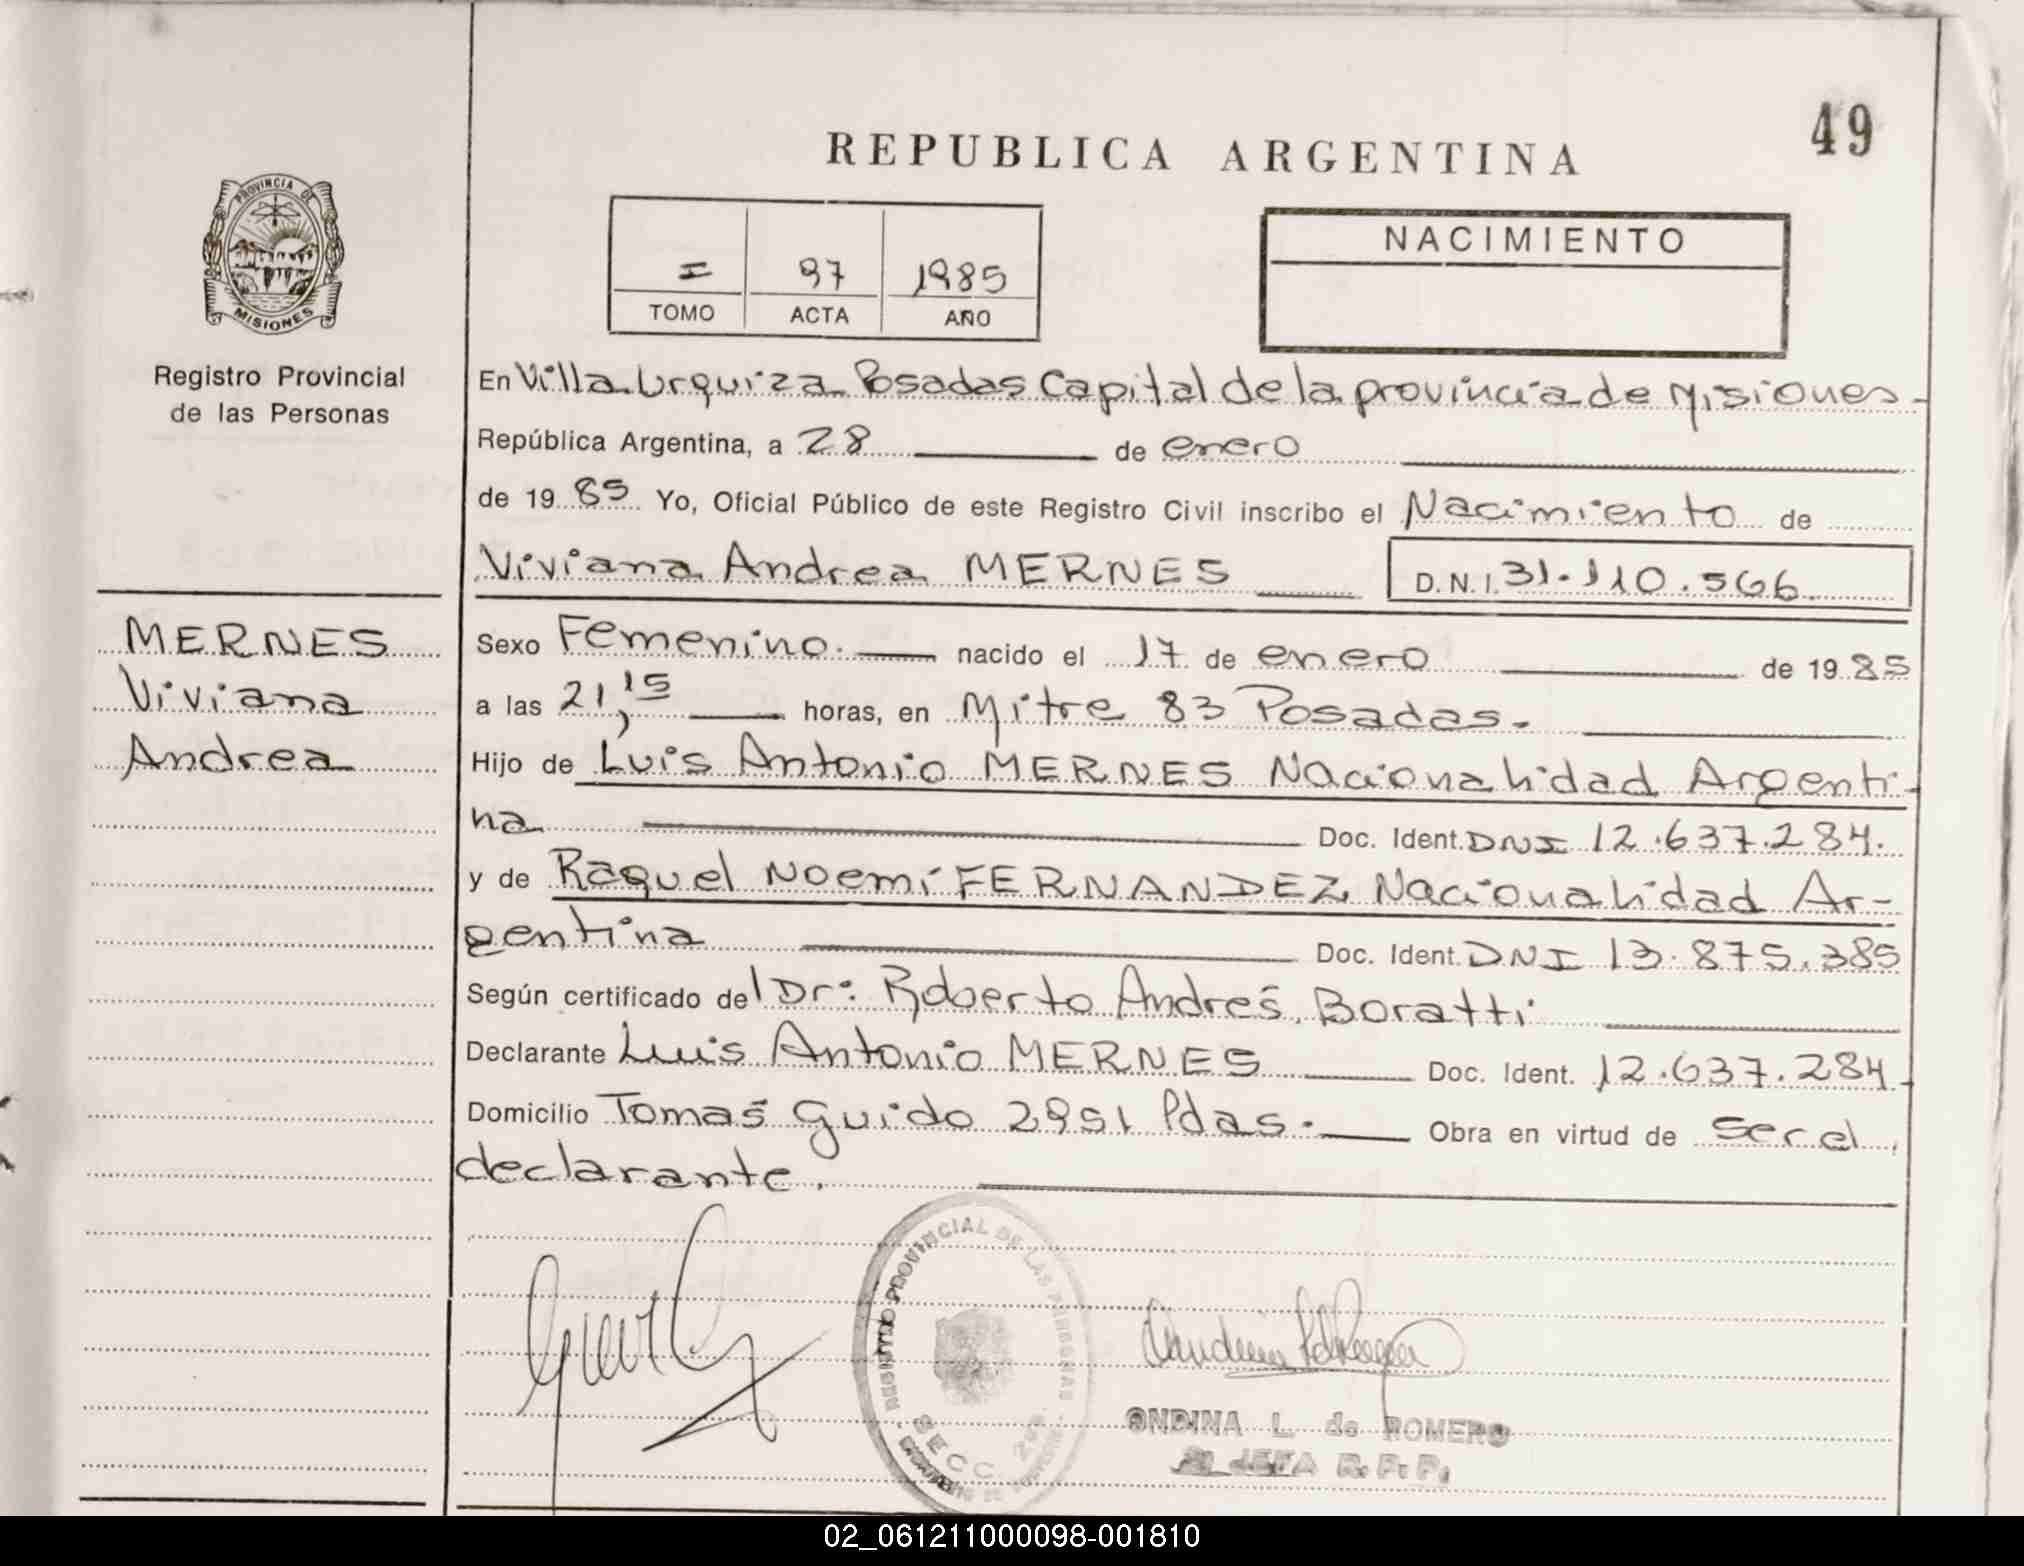 49
REPUBLICA ARGENTINA
PROVINCIA DE
MISIONES
Registro Provincial
de las Personas
I 97 1985
TOMO ACTA AÑO
NACIMIENTO
En Villa Urquiza Posadas Capital de la provincia de Misiones-
República Argentina, a 28 de enero
de 1985 Yo, Oficial Público de este Registro Civil inscribo el Nacimiento de
Viviana Andrea MERNES D.N.I. 31.110.566
MERNES
Viviana
Andrea
Sexo Femenino. nacido el 17 de enero de 1985
a las 21,15 horas, en Mitre 83 Posadas.
Hijo de Luis Antonio MERNES Nacionalidad Argenti-
na Doc. Ident. DNI 12.637.284.
y de Raquel Noemí FERNANDEZ Nacionalidad Ar-
gentina Doc. Ident. DNI 13.875.385
Según certificado del Dr: Roberto Andrés Boratti
Declarante Luis Antonio MERNES Doc. Ident. 12.637.284-
Domicilio Tomás Guido 2951 Pdas. Obra en virtud de ser el
declarante.
REGISTRO PROVINCIAL DE LAS PERSONAS
SECC.
ONDINA L. de ROMERO
JEFA R. P. P.
02_061211000098-001810